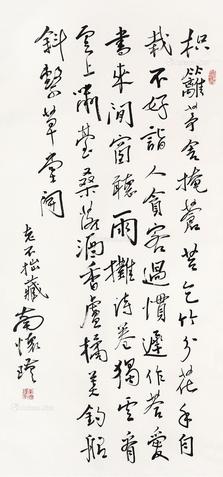 枳籬茅舍掩蒼苔乞竹分花手自
栽不好詣人貪客過慣遲作答愛
書來閒窗聽雨攤詩卷獨樹看
雲上嘯臺桑落酒香盧橘美釣船
斜繫草堂開
南懷瑾